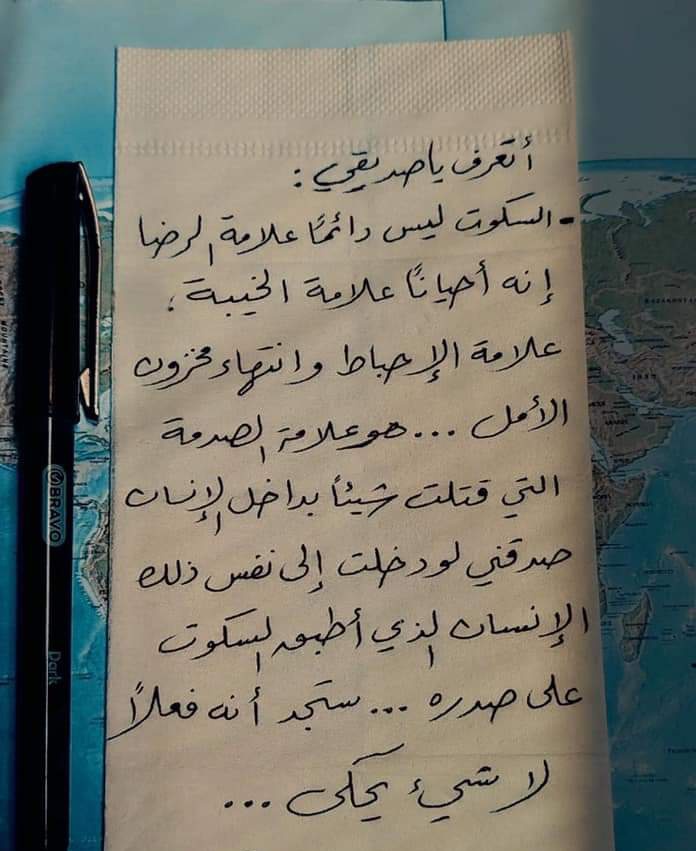 أتعرف يا صديقي :
- السكوت ليس دائمًا علامة الرضا
إنه أحيانًا علامة الخيبة،
علامة الإحباط وانتهاء مخزون
الأمل ... هو علامة الصدمة
التي قتلت شيئاً بداخل الإنسان
صدقني لو دخلت إلى نفس ذلك
الإنسان الذي أطبق السكوت
على صدره ... ستجد أنه فعلاً
لا شيء يحكى ...
BRAVO
Dark